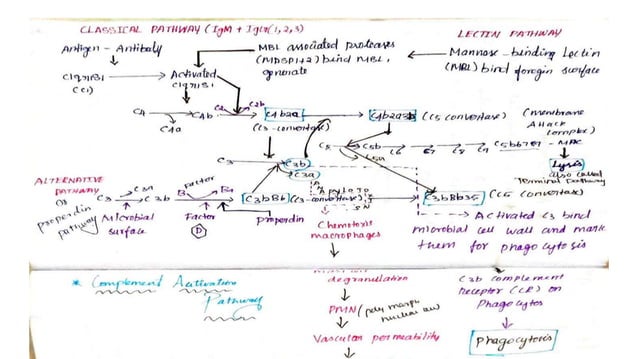 CLASSICAL PATHWAY (IgM + IgG(1,2,3)
LECTIN PATHWAY
Antigen - Antibody
MBL associated proteases
(MASP1+2) bind MBL,
generate
Mannose-binding Lectin
(MBL) bind foregin surface
C1qr1S1
(C1)
Activated
C1qr1S1
C4
C4a
C4b
C2
C2b
C4b2a
(C3-convertase)
C4b2a3b
(C5 convertase)
(membrane
Attack
complex)
C5
C5a
C5b
C6
C7
C8
C9
C5b6789 - MAC
Lysis
also called
Terminal pathway
C3
C3b
C3a
ALTERNATIVE
PATHWAY
or
properdin
pathway
C3
C3a
C3b
Microbial
surface
Factor
B
Factor
D
properdin
C3bBb
(C3-convertase)
C3bBb3b
(C5 convertase)
Chemotoxis
macrophages
Activated C3 bind
microbial cell wall and mark
them for phagocytosis
* Complement Activation
Pathway
degranulation
PMN (poly morph
Vascular permeability
C3b complement
Receptor (CR) on
Phagocytes
phagocytosis